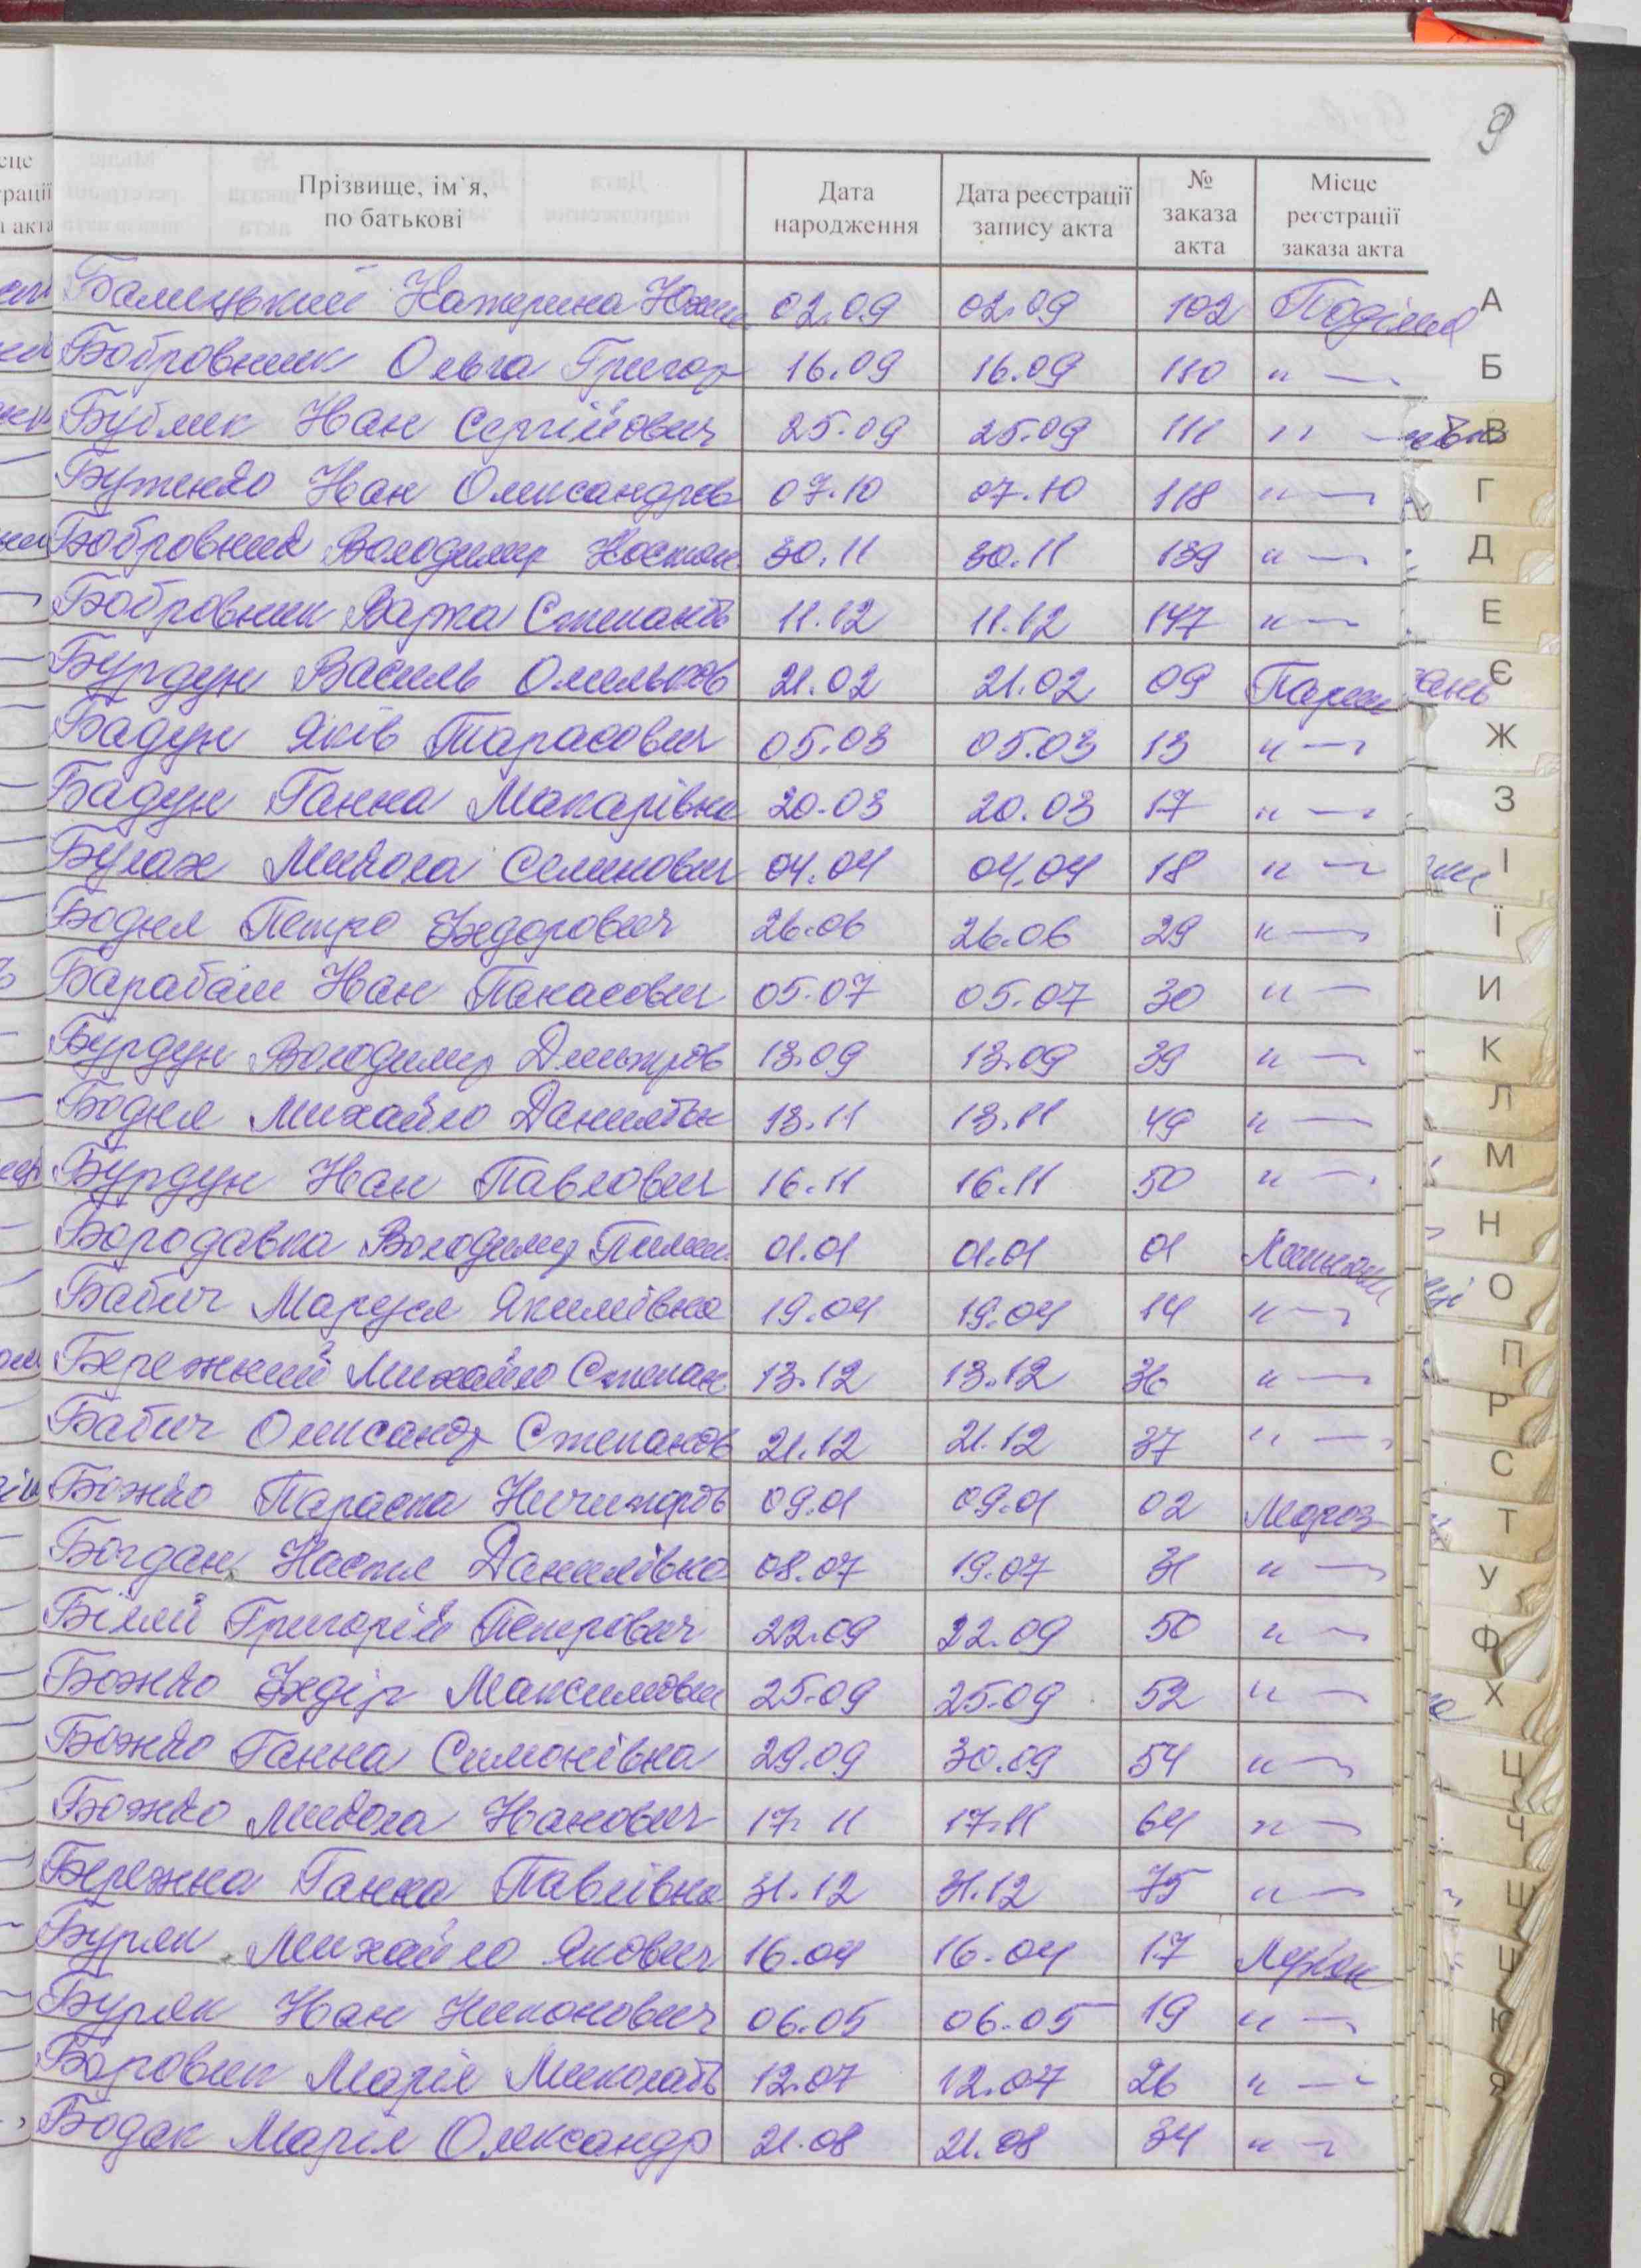 9
Прізвище, ім`я, по батькові | Дата народження | Дата реєстрації запису акта | № заказа акта | Місце реєстрації заказа акта
Балицький Катерина | 02.09 | 02.09 | 102
Бобровник Ольга Григор | 16.09 | 16.09 | 110 | " —
Бублик Іван Сергійович | 25.09 | 25.09 | 111 | " —
Бутенко Іван Олександров | 07.10 | 07.10 | 118 | " —
Бобровник Володимир Костян | 30.11 | 30.11 | 139 | " —
Бобровник Варка Степанів | 11.12 | 11.12 | 147 | " —
Бурдун Василь Омельков | 21.02 | 21.02 | 09 | Парка
Бадун Яків Тарасович | 05.03 | 05.03 | 13 | " —
Бадун Ганна Макарівна | 20.03 | 20.03 | 17 | " —
Булах Микола Семенович | 04.04 | 04.04 | 18 | " —
Бодня Петро Федорович | 26.06 | 26.06 | 29 | " —
Барабаш Іван Панасович | 05.07 | 05.07 | 30 | " —
Бурдун Володимир Дмитров | 13.09 | 13.09 | 39 | " —
Бодня Михайло | 13.11 | 13.11 | 49 | " —
Бурдун Іван Павлович | 16.11 | 16.11 | 50 | " —
Бородавка Володимир Пилип | 01.01 | 01.01 | 01
Бабич Маруся Якимівна | 19.04 | 19.04 | 14 | " —
Бережний Михайло Степан | 13.12 | 13.12 | 36 | " —
Бабич Олександр Степанов | 21.12 | 21.12 | 37 | " —
Божко Параска Ничипорів | 09.01 | 09.01 | 02 | Мороз
Богдан Настя Данилівна | 08.07 | 19.07 | 31 | " —
Білий Григорій Петрович | 22.09 | 22.09 | 50 | " —
Божко Федір Максимович | 25.09 | 25.09 | 52 | " —
Божко Ганна Симонівна | 29.09 | 30.09 | 54 | " —
Божко Микола Іванович | 17.11 | 17.11 | 64 | " —
Бережна Ганна Павлівна | 31.12 | 31.12 | 75 | " —
Буряк Михайло Якович | 16.04 | 16.04 | 17
Буряк Іван Никонович | 06.05 | 06.05 | 19 | " —
Боровик Марія Миколаїв | 12.07 | 12.07 | 26 | " —
Бодак Марія Олександр | 21.08 | 21.08 | 34 | " —
А
Б
В
Г
Д
Е
Є
Ж
З
І
Ї
И
К
Л
М
Н
О
П
Р
С
Т
У
Ф
Х
Ц
Ч
Ш
Щ
Ю
Я